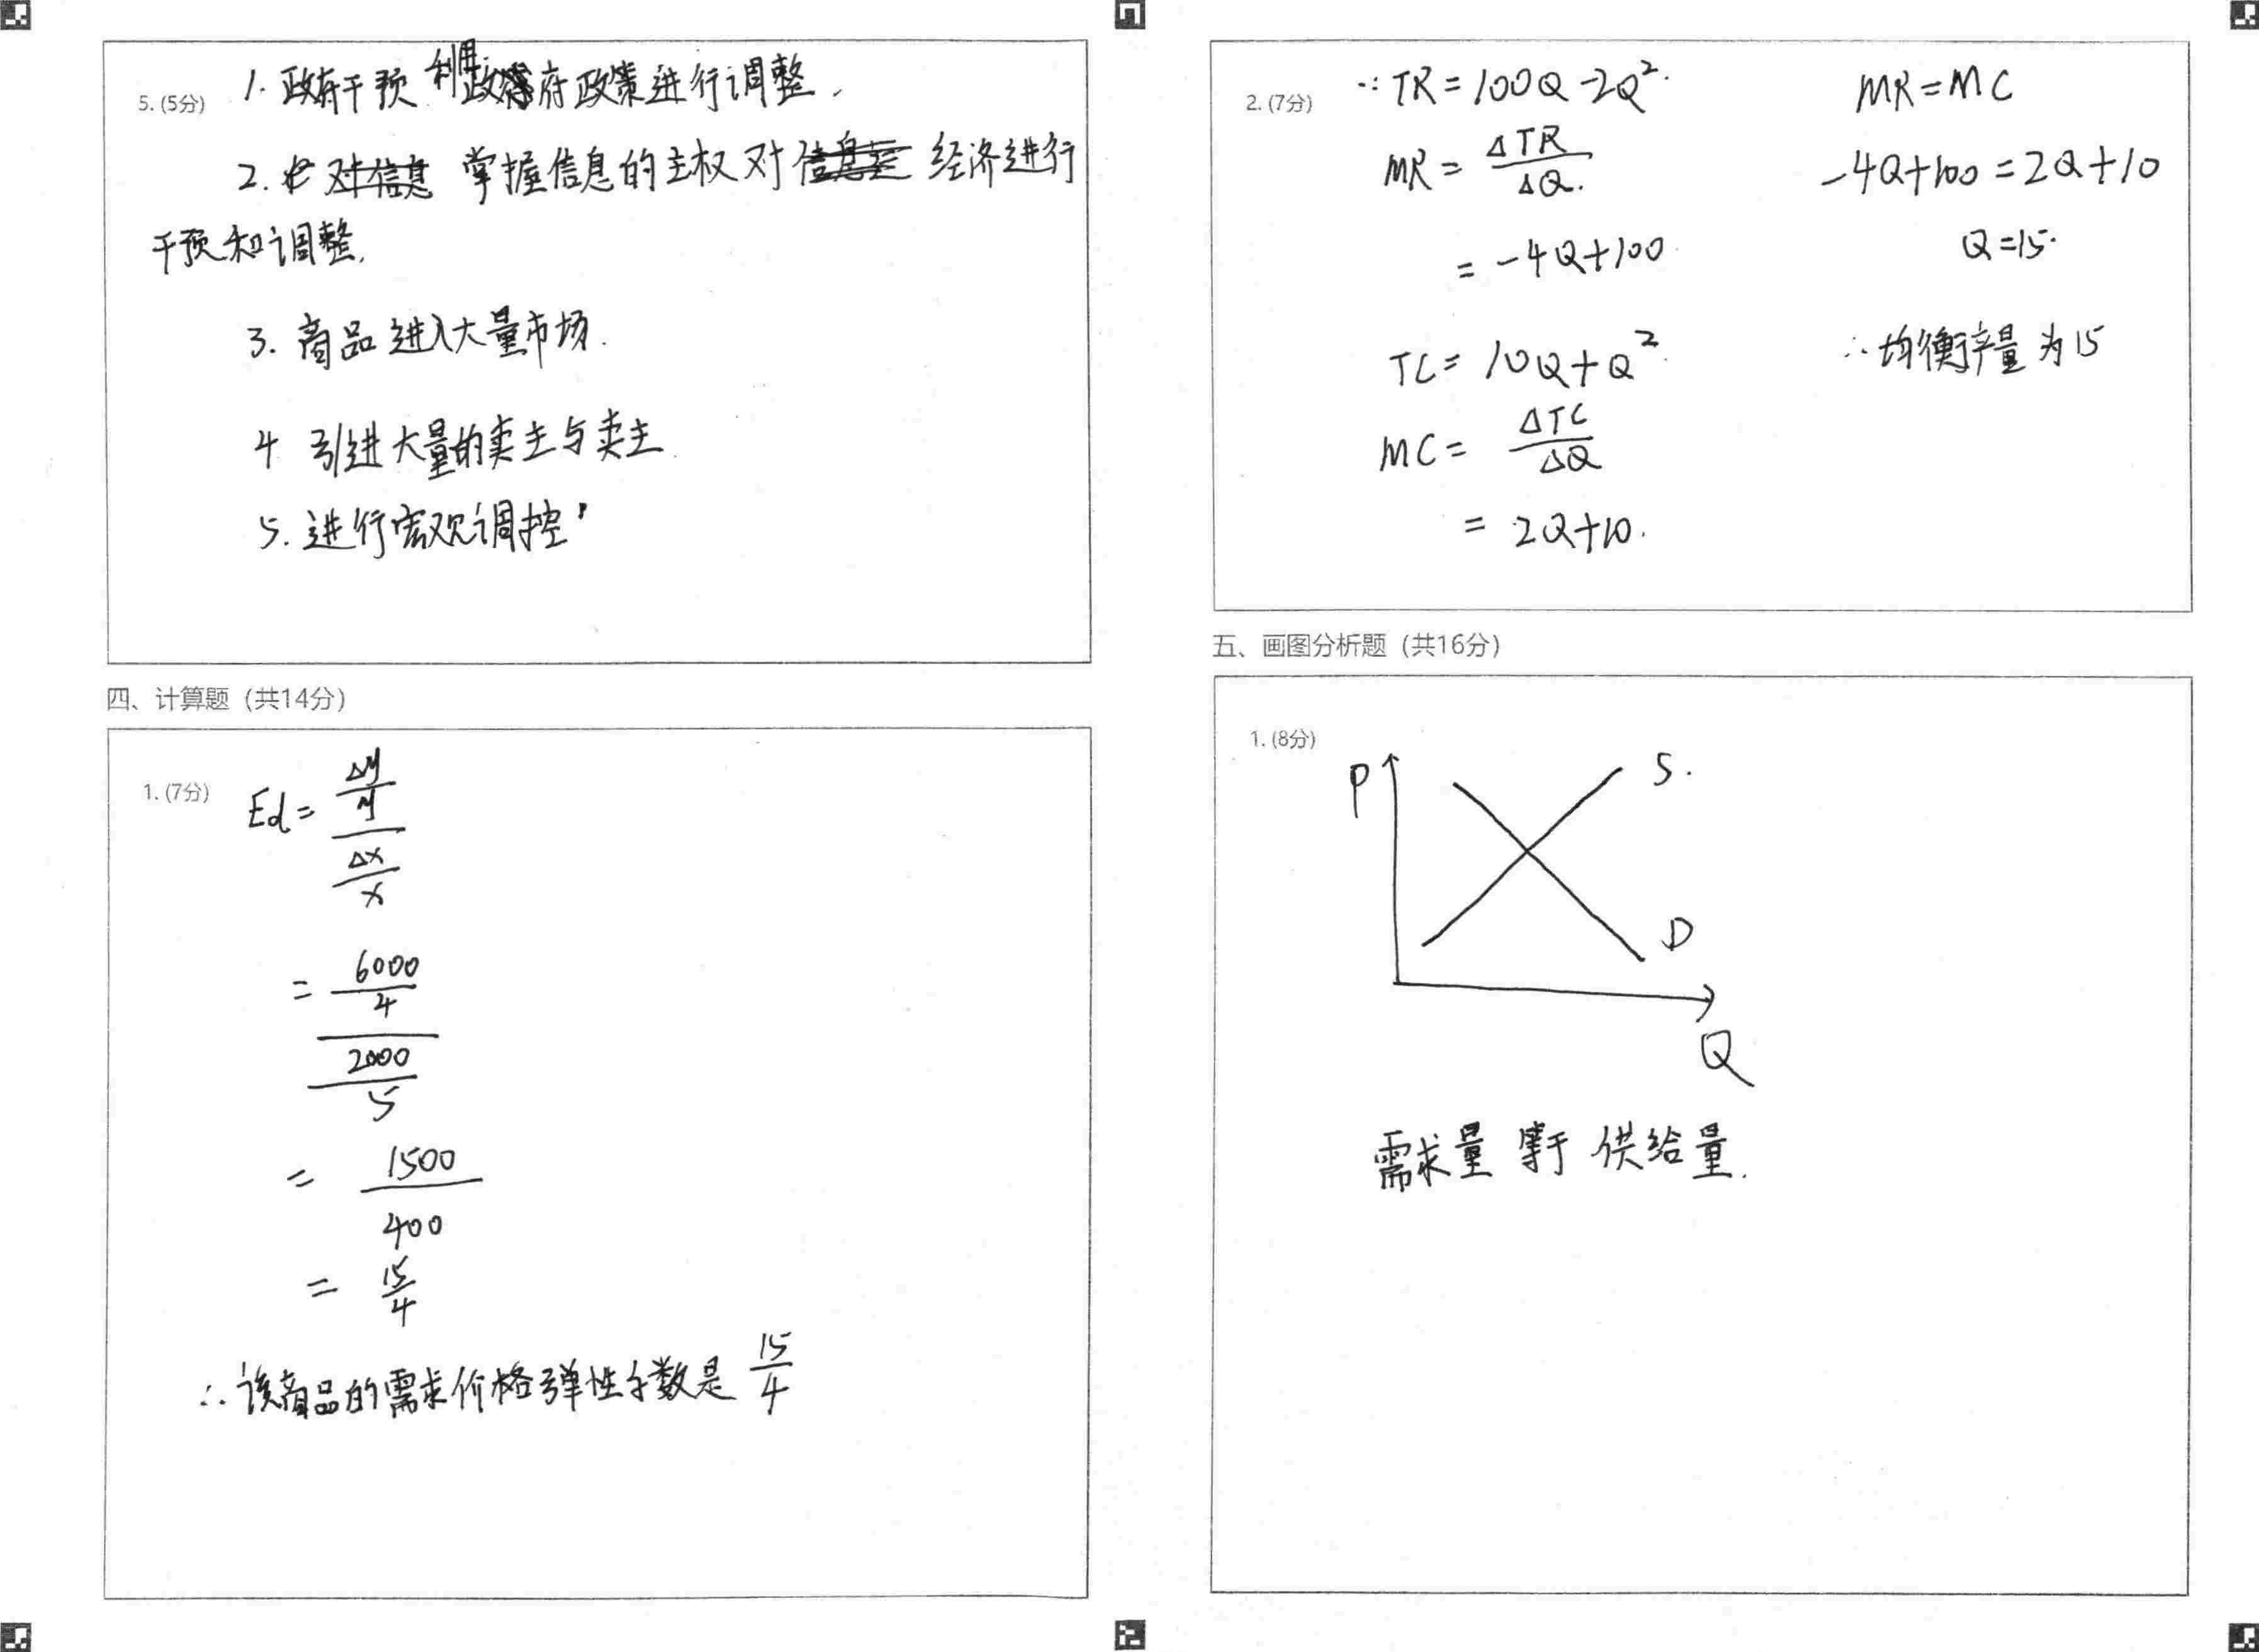 5. (5分)
1. 政府干预 利用政府政策进行调整.
2. 掌握信息的主权对经济进行
干预和调整.
3. 商品进入大量市场.
4 引进大量的卖主与卖主
5. 进行宏观调控
四、计算题（共14分）
1. (7分)
Ed = \frac{\frac{Δy}{y}}{\frac{Δx}{x}}
= \frac{\frac{6000}{4}}{\frac{2000}{5}}
= \frac{1500}{400}
= \frac{15}{4}
∴ 该商品的需求价格弹性系数是 \frac{15}{4}
2. (7分)
∵ TR = 100Q - 2Q².
MR = \frac{ΔTR}{ΔQ}.
= -4Q + 100.
TC = 10Q + Q².
MC = \frac{ΔTC}{ΔQ}
= 2Q + 10.
MR = MC
-4Q + 100 = 2Q + 10
Q = 15.
∴ 均衡产量为15
五、画图分析题（共16分）
1. (8分)
P
S.
D
Q
需求量 等于 供给量.